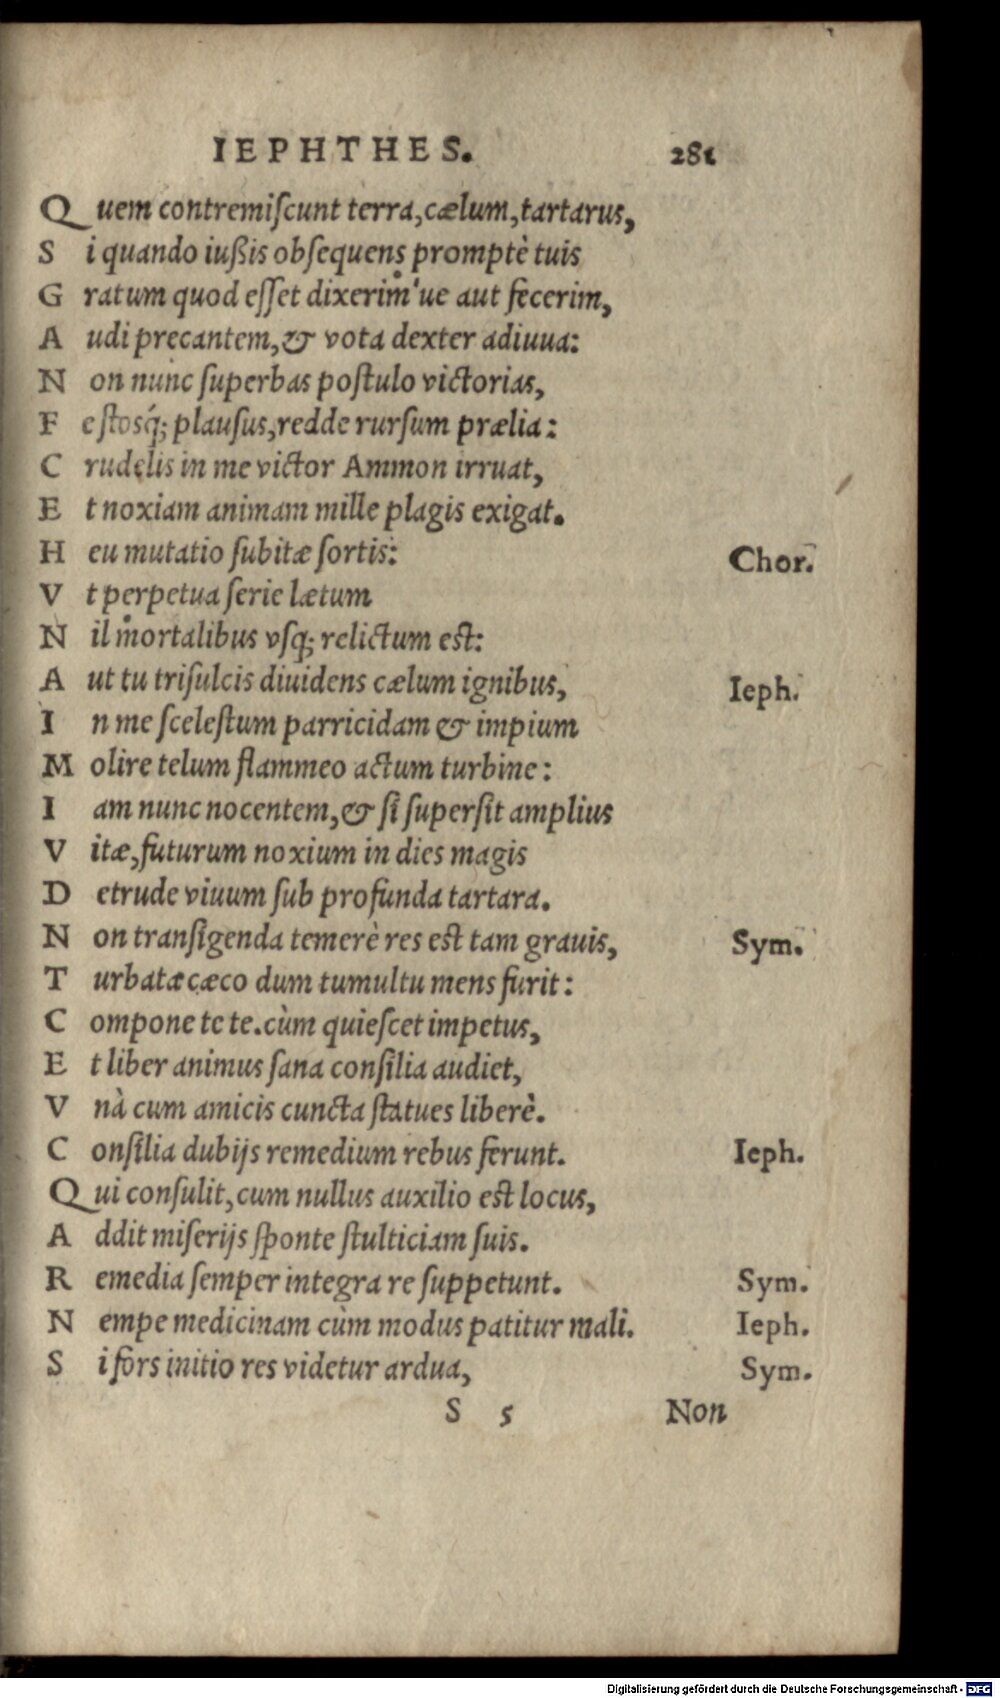 IEPHTHES. 281
Quem contremiſcunt terra,cælum,tartarus,
Si quando iußis obſequens promptè tuis
Gratum quod eſſet dixerim've aut fecerim,
Audi precantem,& vota dexter adiuua:
Non nunc ſuperbas poſtulo victorias,
Feſtosq́; plauſus,redde rurſum prælia:
Crudelis in me victor Ammon irruat,
Et noxiam animam mille plagis exigat.
Heu mutatio ſubitæ ſortis: Chor.
Vt perpetua ſerie lætum
Nil mortalibus vſq; relictum est:
Aut tu triſulcis diuidens cælum ignibus, Ieph.
In me ſceleſtum parricidam & impium
Molire telum flammeo actum turbine:
Iam nunc nocentem,& ſi ſuperſit amplius
Vitæ,futurum noxium in dies magis
Detrude viuum ſub profunda tartara.
Non tranſigenda temerè res est tam grauis, Sym.
Turbata cæco dum tumultu mens furit:
Compone te te.cùm quieſcet impetus,
Et liber animus ſana conſilia audiet,
Vnà cum amicis cuncta ſtatues liberè.
Conſilia dubijs remedium rebus ferunt. Ieph.
Qui conſulit,cum nullus auxilio est locus,
Addit miſerijs ſponte ſtulticiam ſuis.
Remedia ſemper integra re ſuppetunt. Sym.
Nempe medicinam cùm modus patitur mali. Ieph.
Si fors initio res videtur ardua, Sym.
S 5 Non
Digitalisierung gefördert durch die Deutsche Forschungsgemeinschaft - DFG